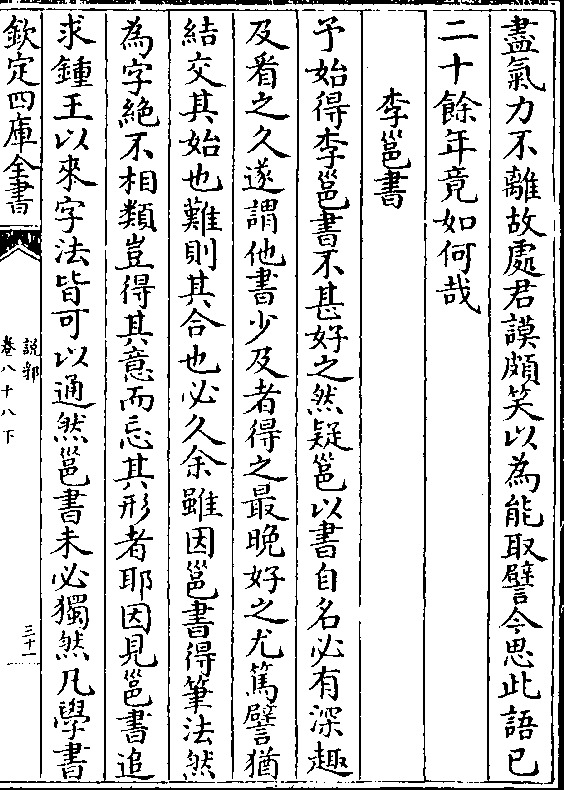 盡氣力不離故處君謨頗笑以為能取譬今思此語已
二十餘年竟如何哉
李邕書
予始得李邕書不甚好之然疑邕以書自名必有深趣
及看之久遂謂他書少及者得之最晚好之尤篤譬猶
結交其始也難則其合也必久余雖因邕書得筆法然
為字絶不相類豈得其意而忘其形者耶因見邕書追
求鍾王以來字法皆可以通然邕書未必獨然凡學書
欽定四庫全書
說郛
卷八十八下
三十一